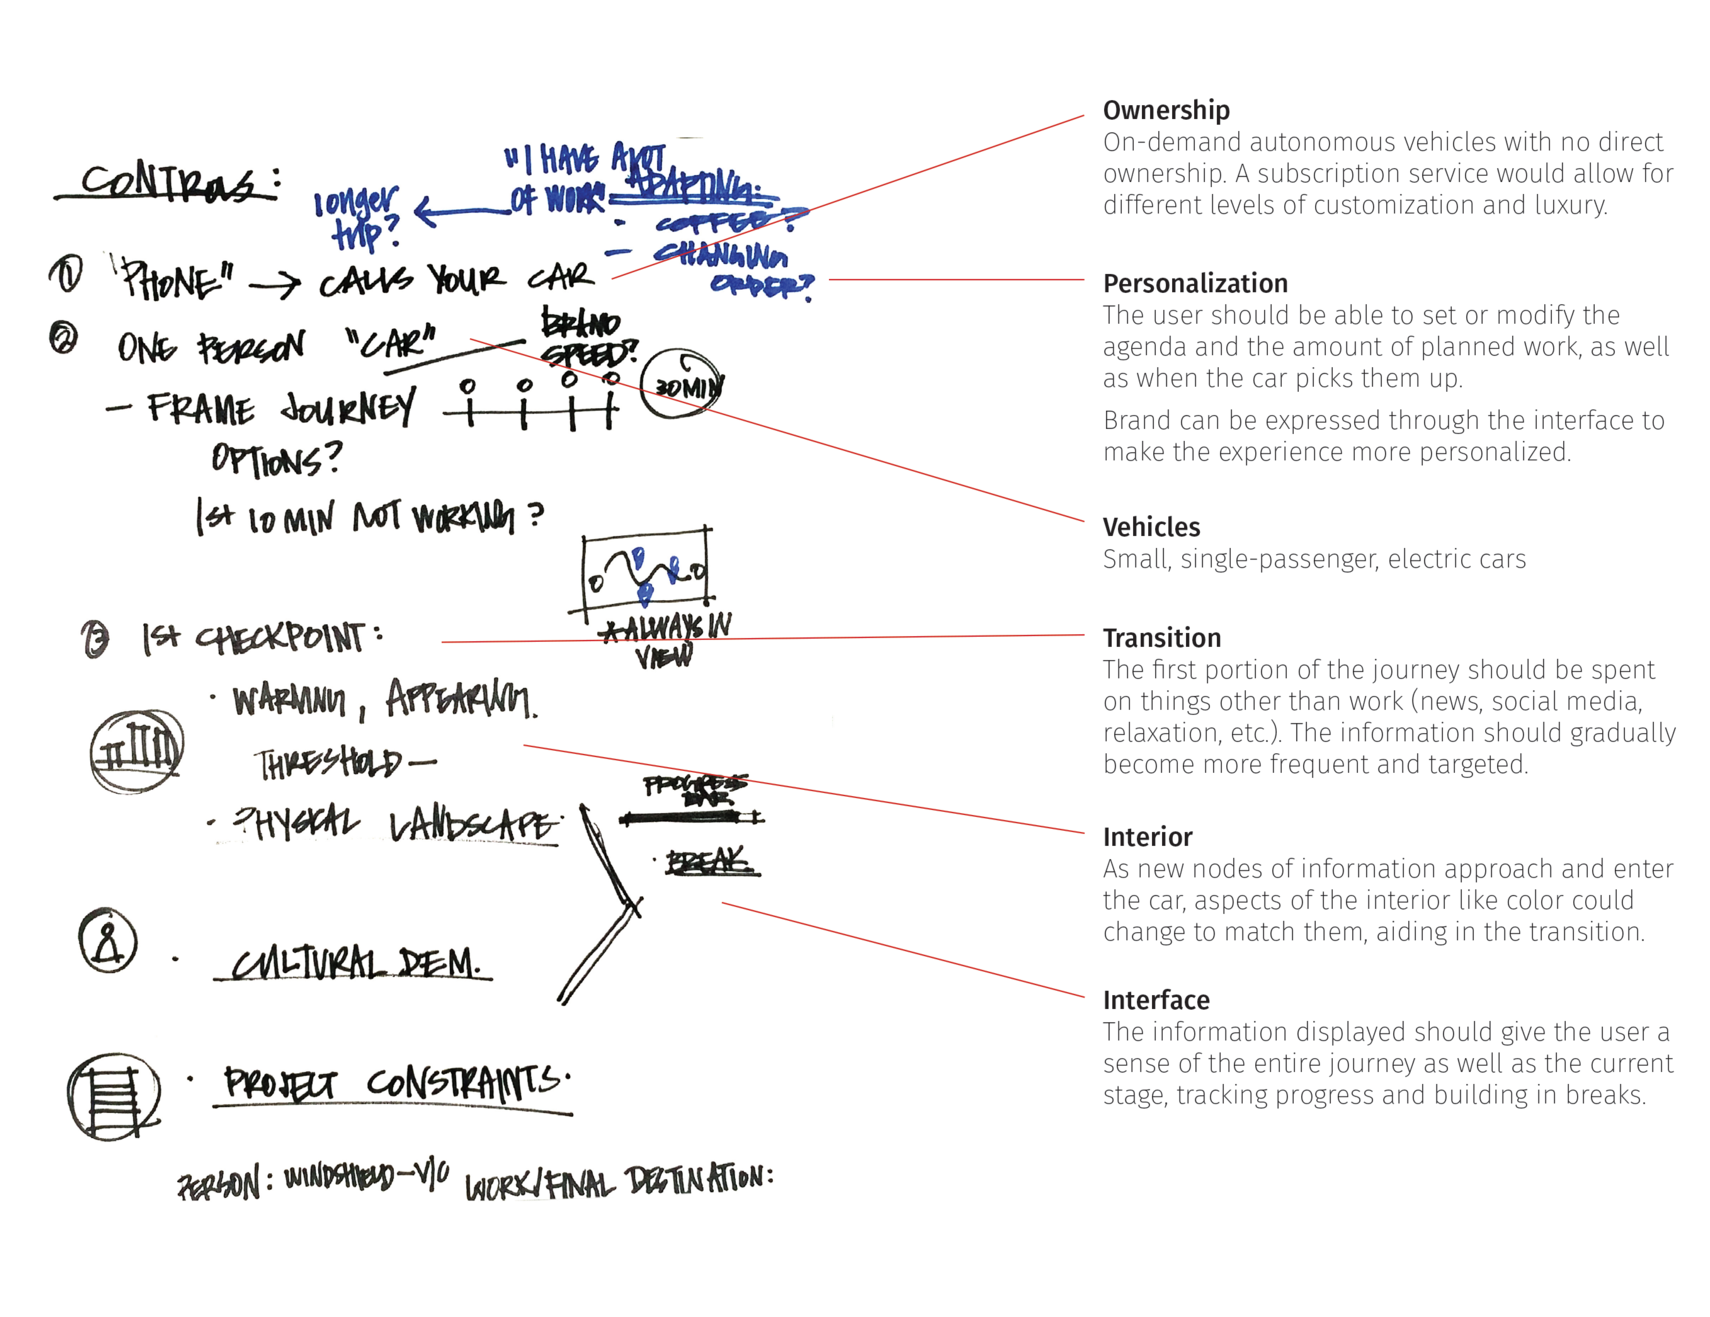 CONTRAS:
"I HAVE A LOT
OF WORK
longer
trip?
ADAPTING:
- COFFEE?
- CHANGING
ORDER?
① "PHONE" → CALLS YOUR CAR
② ONE PERSON "CAR"
BRAND
SPEED?
30 MIN
- FRAME JOURNEY
OPTIONS?
1st 10 MIN NOT WORKING?
③ 1st CHECKPOINT:
*ALWAYS IN
VIEW
· WARNING, APPEARING.
THRESHOLD —
· PHYSICAL LANDSCAPE
PROGRESS
BAR
· BREAK.
· CULTURAL DEM.
· PROJECT CONSTRAINTS.
PERSON: WINDSHIELD - V/O WORK/FINAL DESTINATION:
Ownership
On-demand autonomous vehicles with no direct
ownership. A subscription service would allow for
different levels of customization and luxury.
Personalization
The user should be able to set or modify the
agenda and the amount of planned work, as well
as when the car picks them up.
Brand can be expressed through the interface to
make the experience more personalized.
Vehicles
Small, single-passenger, electric cars
Transition
The first portion of the journey should be spent
on things other than work (news, social media,
relaxation, etc.). The information should gradually
become more frequent and targeted.
Interior
As new nodes of information approach and enter
the car, aspects of the interior like color could
change to match them, aiding in the transition.
Interface
The information displayed should give the user a
sense of the entire journey as well as the current
stage, tracking progress and building in breaks.